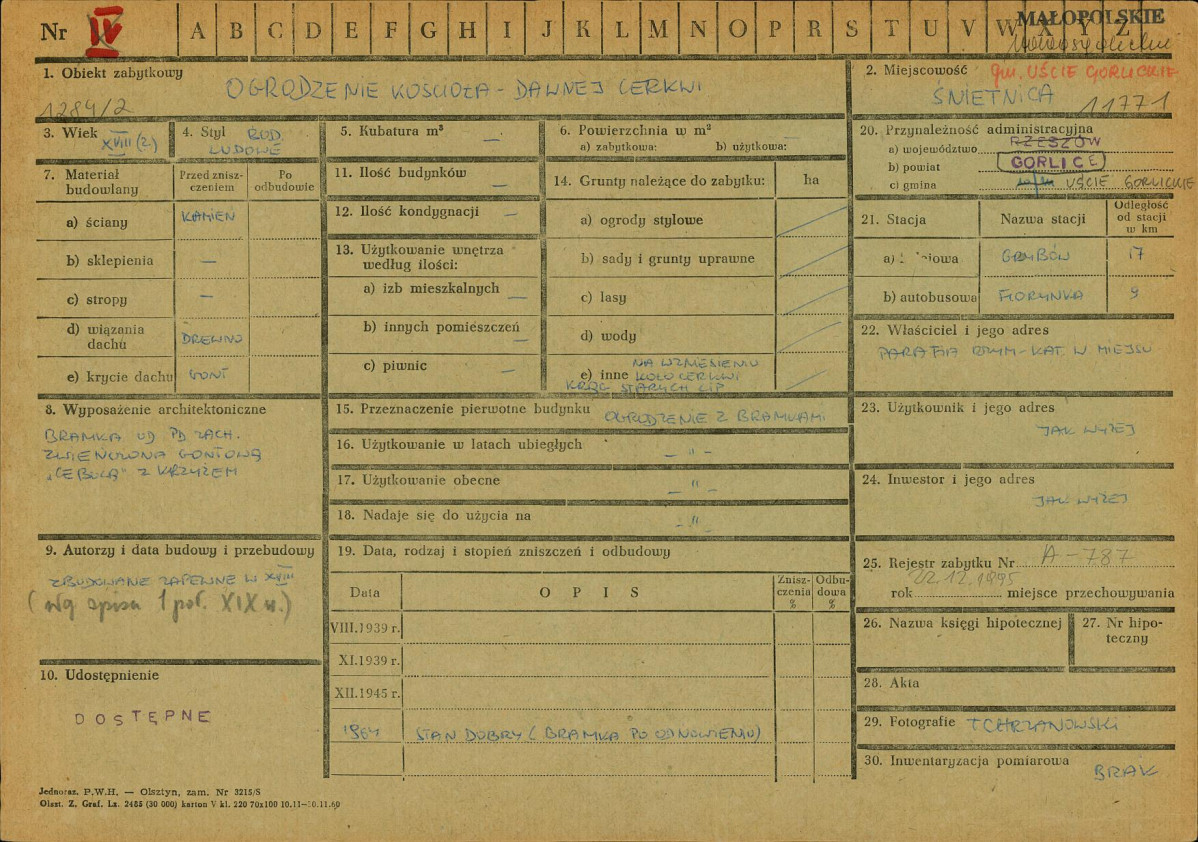 Nr IV A B C D E F G H I J K L M N O P R S T U V W X Y Z
MAŁOPOLSKIE
nowosądeckie
1. Obiekt zabytkowy
OGRODZENIE KOŚCIOŁA - DAWNEJ CERKWI
1284/2
2. Miejscowość gm. UŚCIE GORLICKIE
ŚNIETNICA 11771
3. Wiek
XVIII (?)
4. Styl ROD.
LUDOWE
5. Kubatura m³ —
6. Powierzchnia w m² —
a) zabytkowa: b) użytkowa:
20. Przynależność administracyjna
a) województwo RZESZÓW
b) powiat GORLICE
c) gmina UŚCIE GORLICKIE
7. Materiał budowlany
Przed zniszczeniem
Po odbudowie
a) ściany KAMIEŃ
b) sklepienia —
c) stropy —
d) wiązania dachu DREWNO
e) krycie dachu GONT
11. Ilość budynków —
12. Ilość kondygnacji —
13. Użytkowanie wnętrza
według ilości:
a) izb mieszkalnych —
b) innych pomieszczeń —
c) piwnic —
14. Grunty należące do zabytku: ha
a) ogrody stylowe
b) sady i grunty uprawne
c) lasy
d) wody
e) inne NA WZNIESIENIU
KOŁO CERKWI
KRĄG STARYCH LIP
21. Stacja Nazwa stacji Odległość od stacji w km
a) GRYBÓW 17
b) autobusowa FLORYNKA 9
22. Właściciel i jego adres
PARAFIA RZYM-KAT. W MIEJSU
8. Wyposażenie architektoniczne
BRAMKA OD PD ZACH.
ZWIEŃCZONA GONTOWĄ
„CEBULĄ" Z KRZYŻEM
15. Przeznaczenie pierwotne budynku OGRODZENIE Z BRAMKAMI
16. Użytkowanie w latach ubiegłych — " —
17. Użytkowanie obecne — " —
18. Nadaje się do użycia na — " —
23. Użytkownik i jego adres
JAK WYŻEJ
24. Inwestor i jego adres
JAK WYŻEJ
9. Autorzy i data budowy i przebudowy
ZBUDOWANE ZAPEWNE W XVIII
(wg spisu 1 poł. XIX w.)
10. Udostępnienie
DOSTĘPNE
19. Data, rodzaj i stopień zniszczeń i odbudowy
Data OPIS Zniszczenia % Odbudowa %
VIII.1939 r.
XI.1939 r.
XII.1945 r.
1964 STAN DOBRY (BRAMKA PO ODNOWIENIU)
25. Rejestr zabytku Nr A-787
22.12.1995
rok miejsce przechowywania
26. Nazwa księgi hipotecznej
27. Nr hipoteczny
28. Akta
29. Fotografie T CHRZANOWSKI
30. Inwentaryzacja pomiarowa
BRAK
Jednoraz. P.W.H. — Olsztyn, zam. Nr 3215/S
Olszt. Z. Graf. Lz. 2485 (30 000) karton V kl. 220 70x100 10.11—10.11.60